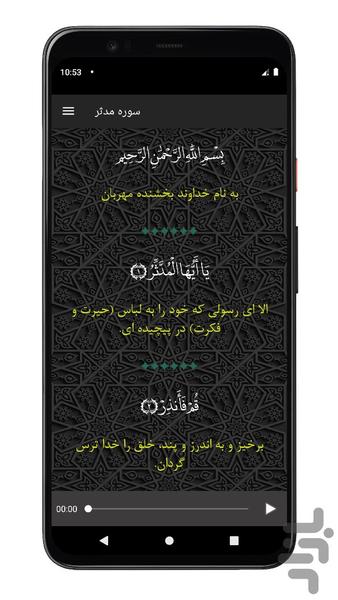 10:53
سوره مدثر
بِسْمِ اللَّهِ الرَّحْمَٰنِ الرَّحِيمِ
به نام خداوند بخشنده مهربان
يَا أَيُّهَا الْمُدَّثِّرُ ﴿١﴾
الا ای رسولی که خود را به لباس (حیرت و
فکرت) در پیچیده ای.
قُمْ فَأَنذِرْ ﴿٢﴾
برخیز و به اندرز و پند، خلق را خدا ترس
گردان.
00:00
بازار